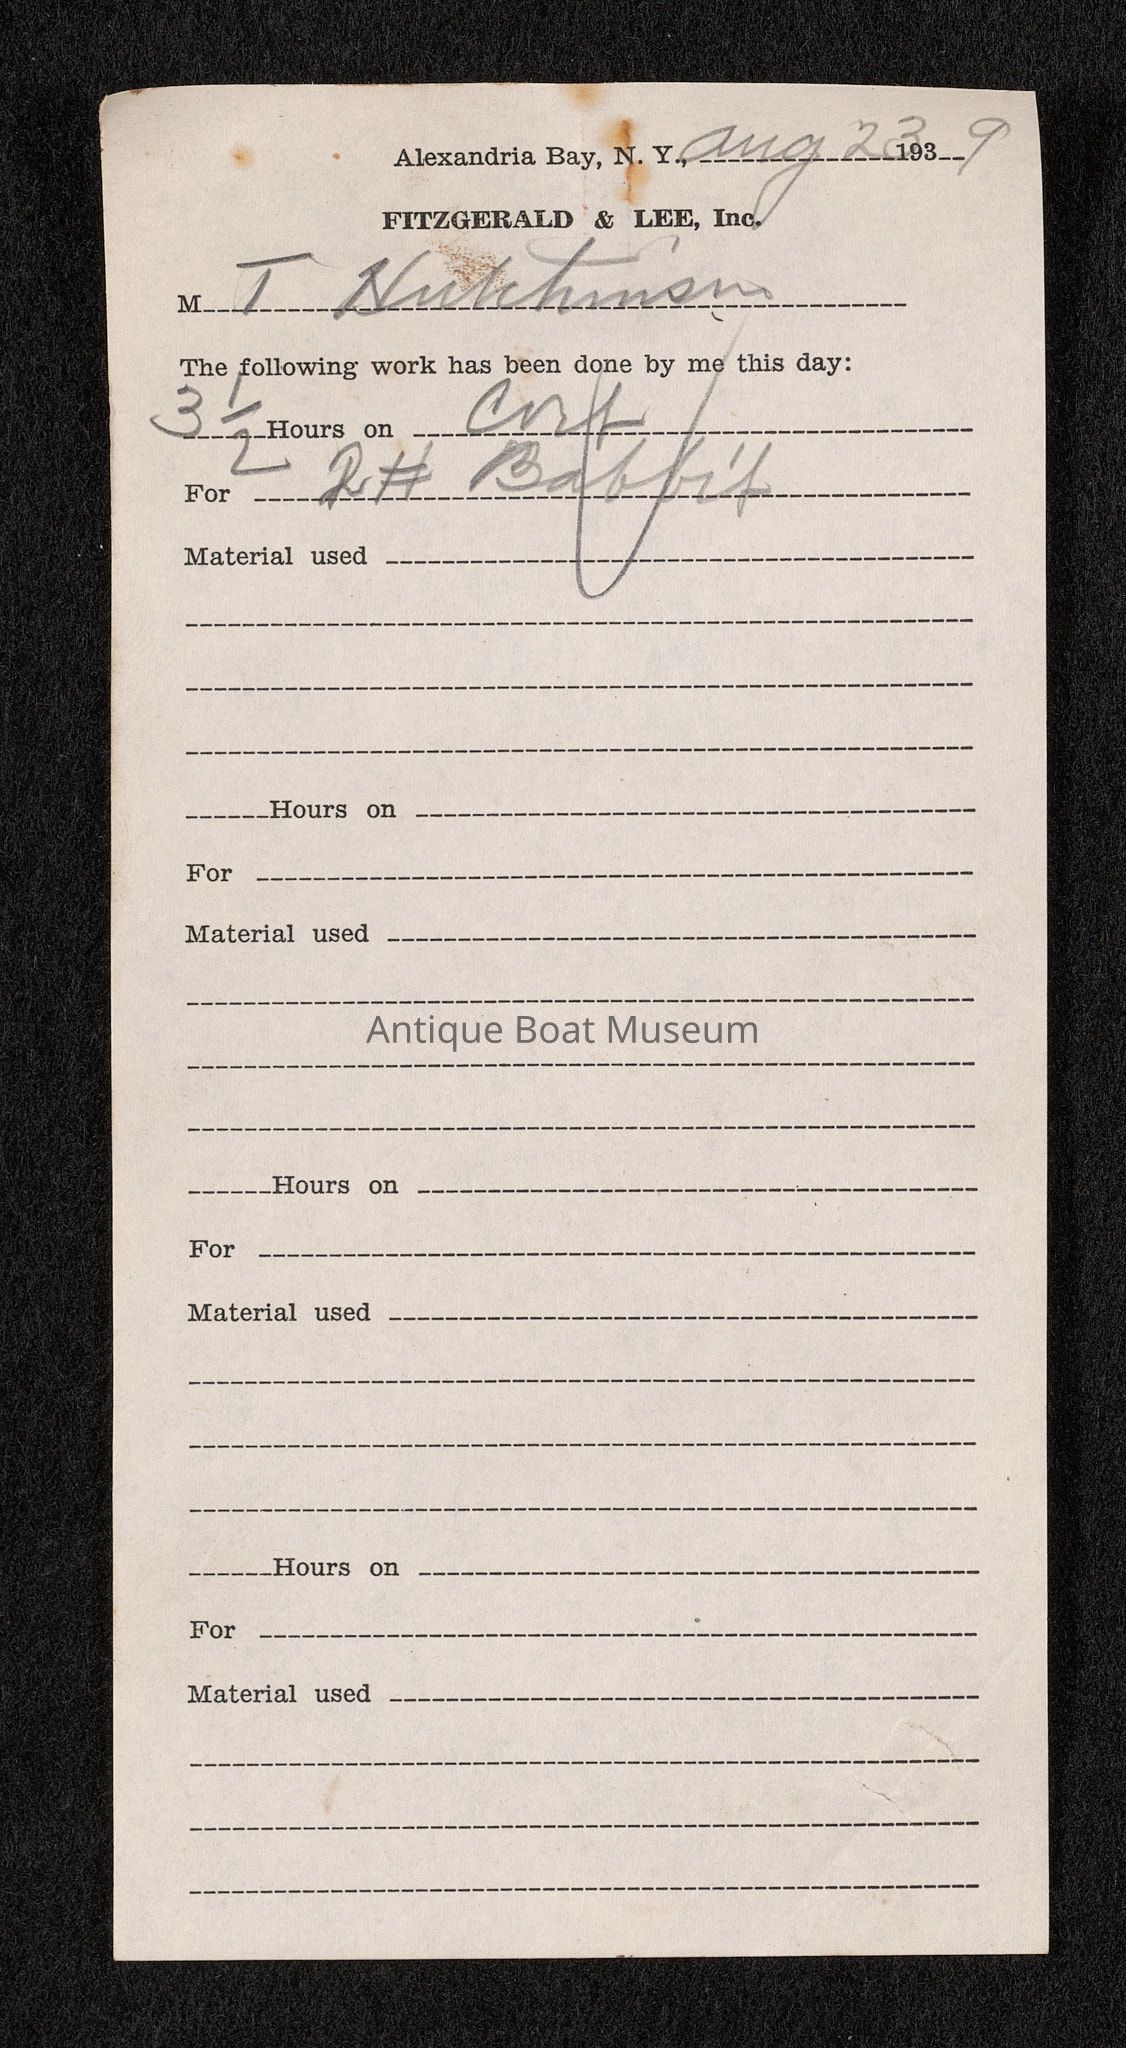 Alexandria Bay, N. Y., Aug 23 1939
FITZGERALD & LEE, Inc.
M T Hutchinson
The following work has been done by me this day:
3 1/2 Hours on
For Babbit
Material used
Hours on
For
Material used
Antique Boat Museum
Hours on
For
Material used
Hours on
For
Material used